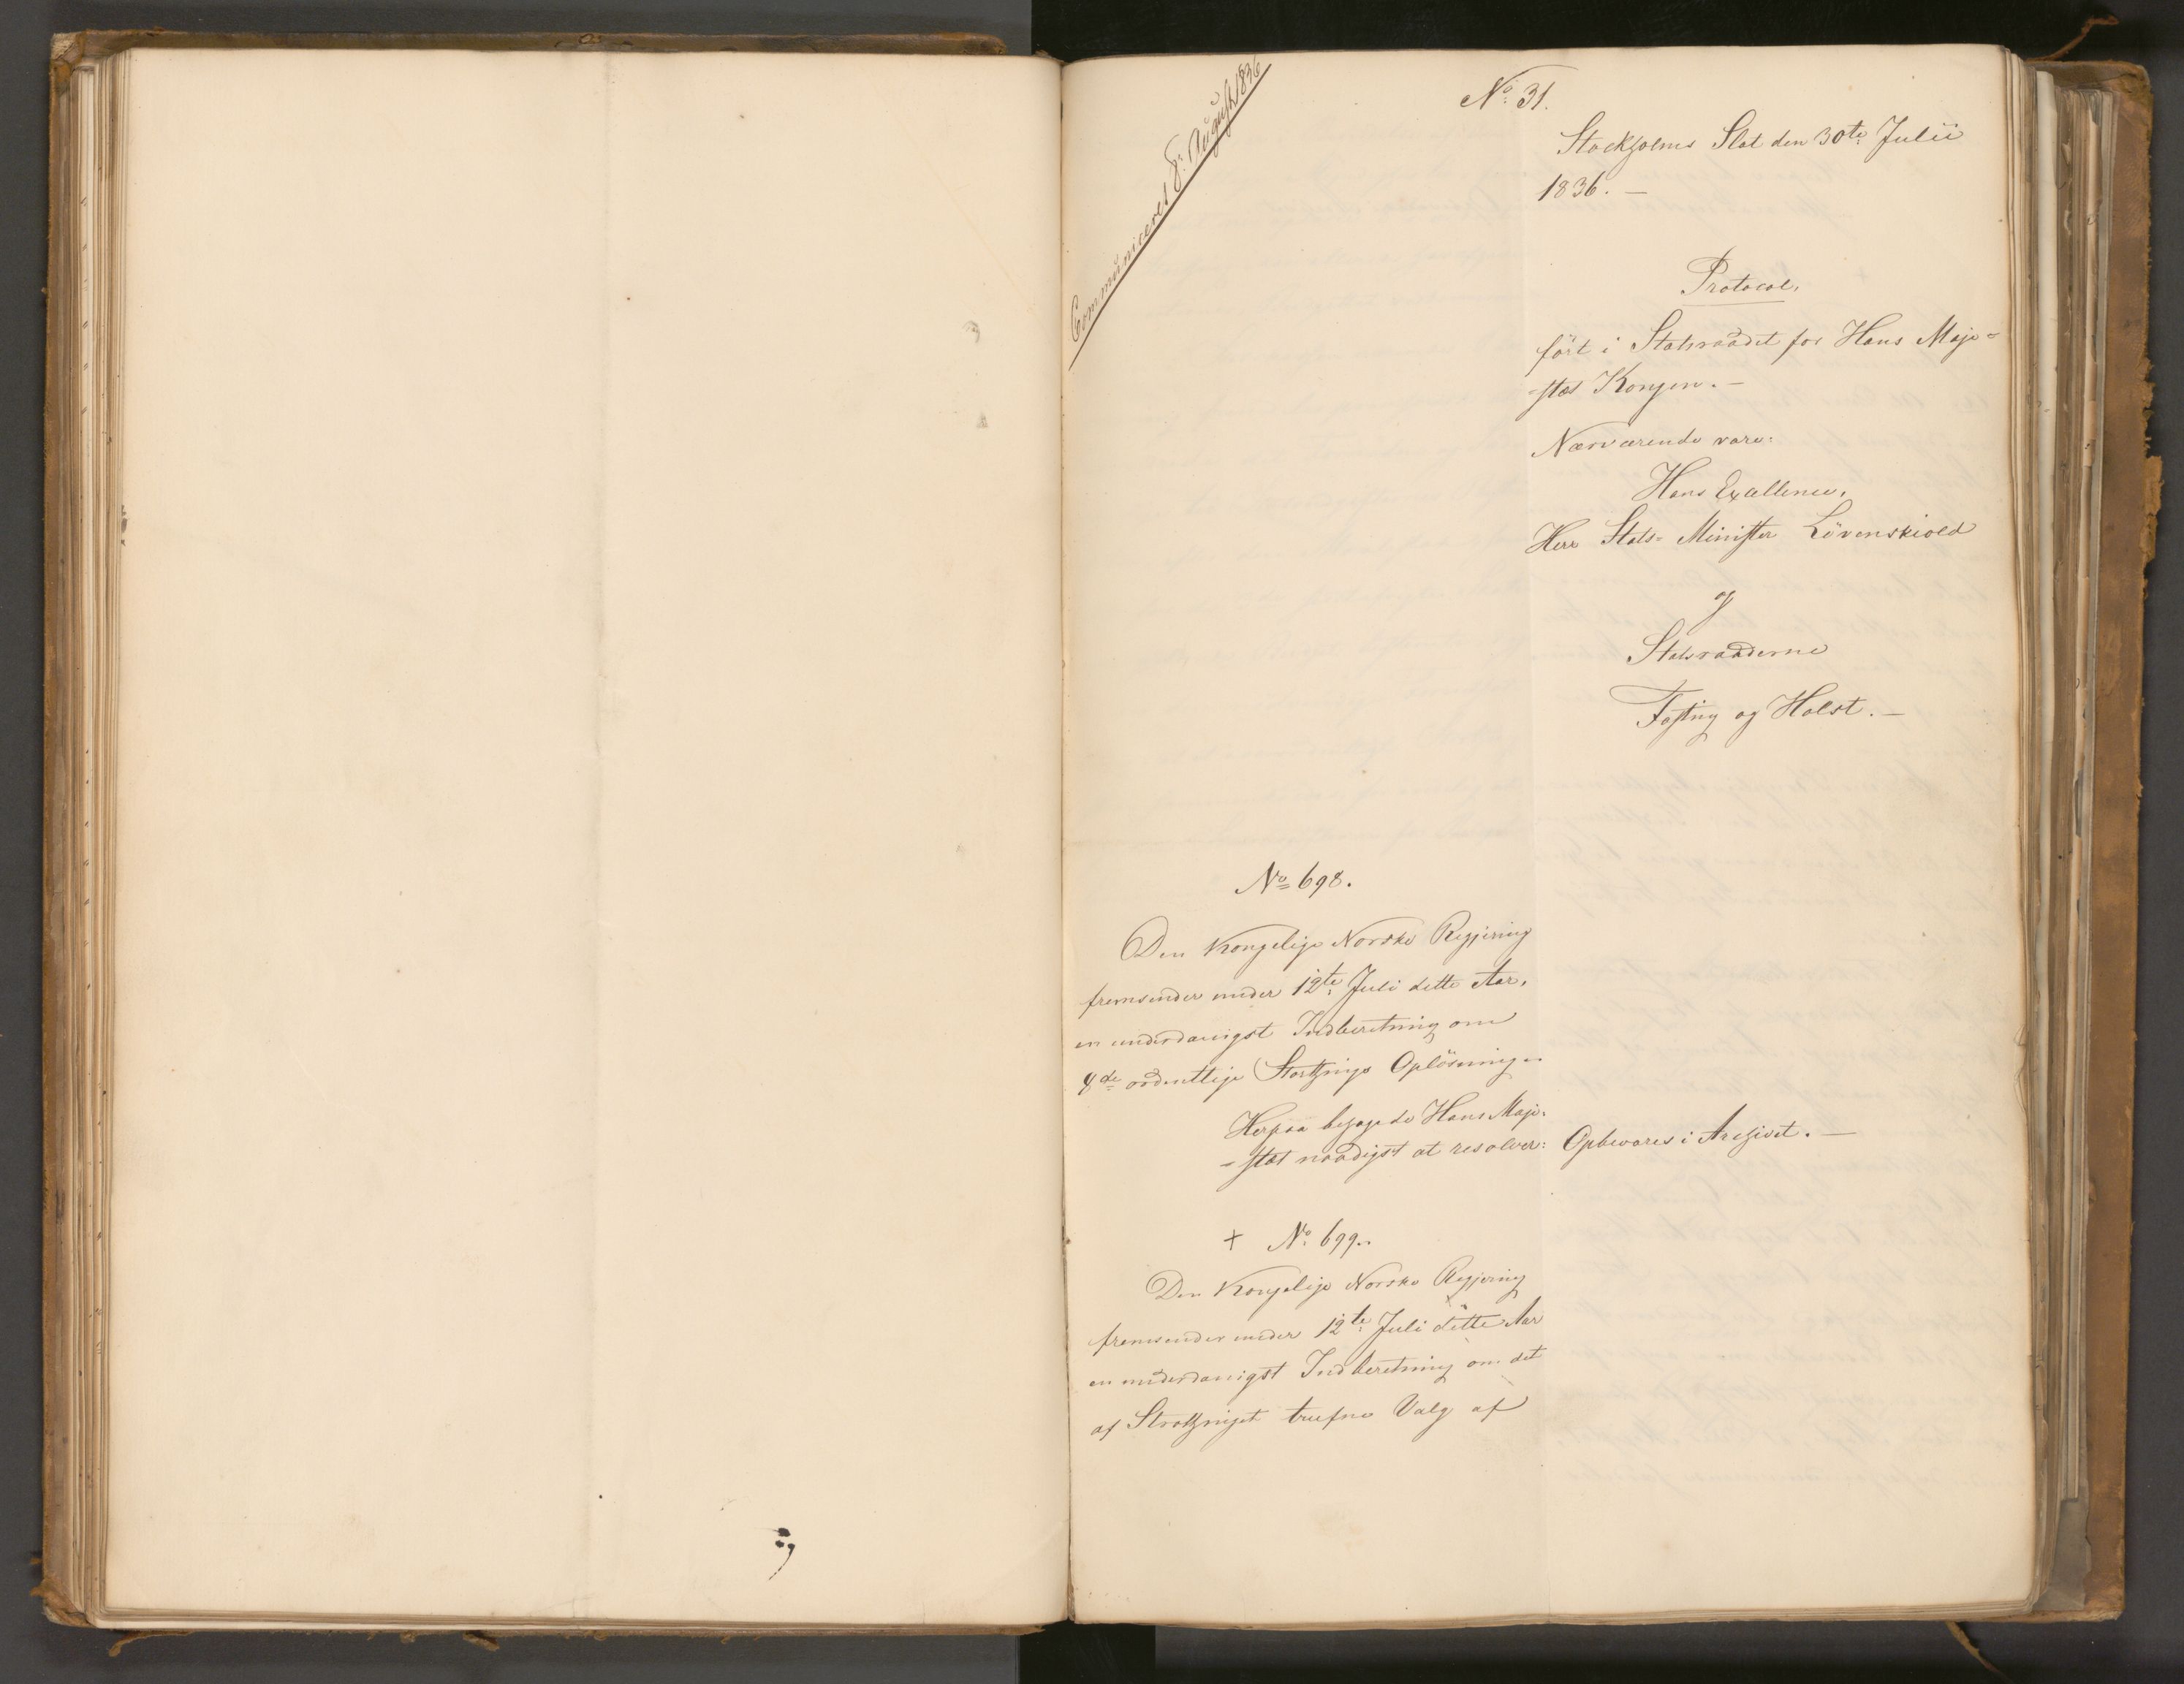 Communiceret 8: August 1836
No: 31.
Stockholms Slot den 30te: Julii
1836. —
Protocol,
fört i Statsraadet for Hans Maje-
-stæt Kongen. —
Nærværende vare:
Hans Excellence,
Herr Stats-Minister Lövenskiold
og
Statsraaderne
Fasting og Holst. —
No= 698.
Den Kongelige Norske Regjering
fremsender under 12te: Juli dette Aar,
en underdanigst Indberetning om
8de= ordentlige Storthings Oplösning
Herpaa behagede Hans Maje-
-stæt naadigst at resolver: Opbevares i Archivet. —
+ No: 699.
Den Kongelige Norske Regjering
fremsender under 12te: Juli dette Aar
en underdanigst Indberetning om det
af Storthinget trufne Valg af